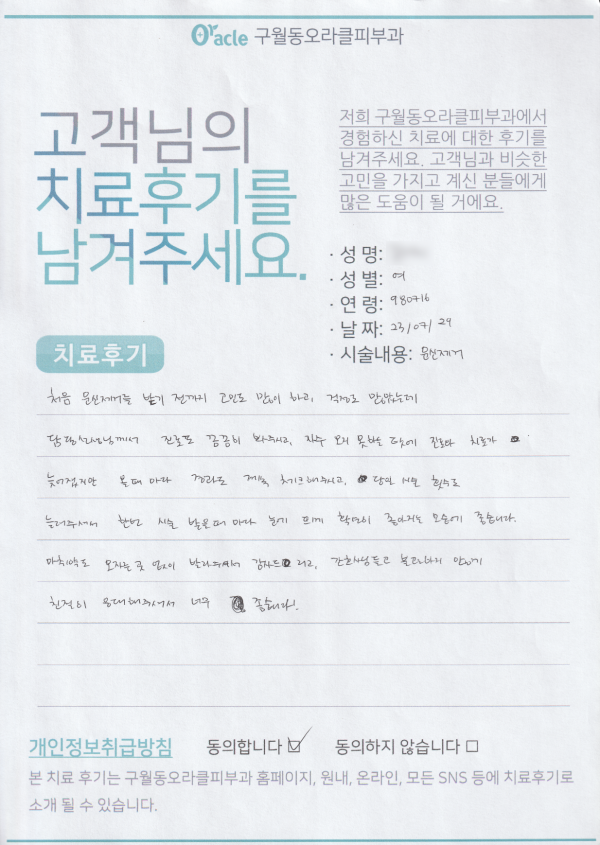 Oracle 구월동오라클피부과
고객님의
치료후기를
남겨주세요.
저희 구월동오라클피부과에서
경험하신 치료에 대한 후기를
남겨주세요. 고객님과 비슷한
고민을 가지고 계신 분들에게
많은 도움이 될 거에요.
· 성 명:
· 성 별: 여
· 연 령: 980716
· 날 짜: 23/07/29
· 시술내용: 문신제거
치료후기
처음 문신제거를 받기 전까지 고민도 많이 하고, 걱정도 많았는데
담당선생님께서 진료도 꼼꼼히 봐주시고, 자주 오지 못하는 탓에 진료와 치료가
늦어졌지만 올때 마다 경과도 계속 체크해주시고, 당일 시술 횟수도
늘려주셔서 한번 시술 받을때 마다 눈에 띄게 확연히 좋아지는 모습에 좋습니다.
마취약도 모자는곳 없이 발라주셔서 감사드리고, 간호사님들도 불편하지 않게
친절히 응대해주셔서 너무 좋습니다!
개인정보취급방침 동의합니다 동의하지 않습니다
본 치료 후기는 구월동오라클피부과 홈페이지, 원내, 온라인, 모든 SNS 등에 치료후기로
소개 될 수 있습니다.